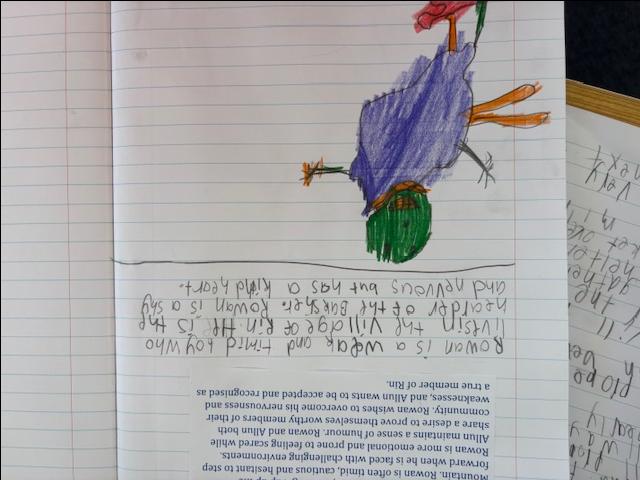 Mountain. Rowan is often timid, cautious and hesitant to step
forward when he is faced with challenging environments.
Rowan is more emotional and prone to feeling scared while
Allun maintains a sense of humour. Rowan and Allun both
share a desire to prove themselves worthy members of their
community. Rowan wishes to overcome his nervousness and
weaknesses, and Allun wants to be accepted and recognised as
a true member of Rin.
Rowan is a weak and timid boy who
livesin the village of Rin. He is the
hearder of the Baksher. Rowan is a shy
and nervous but has a kind heart.
the
very